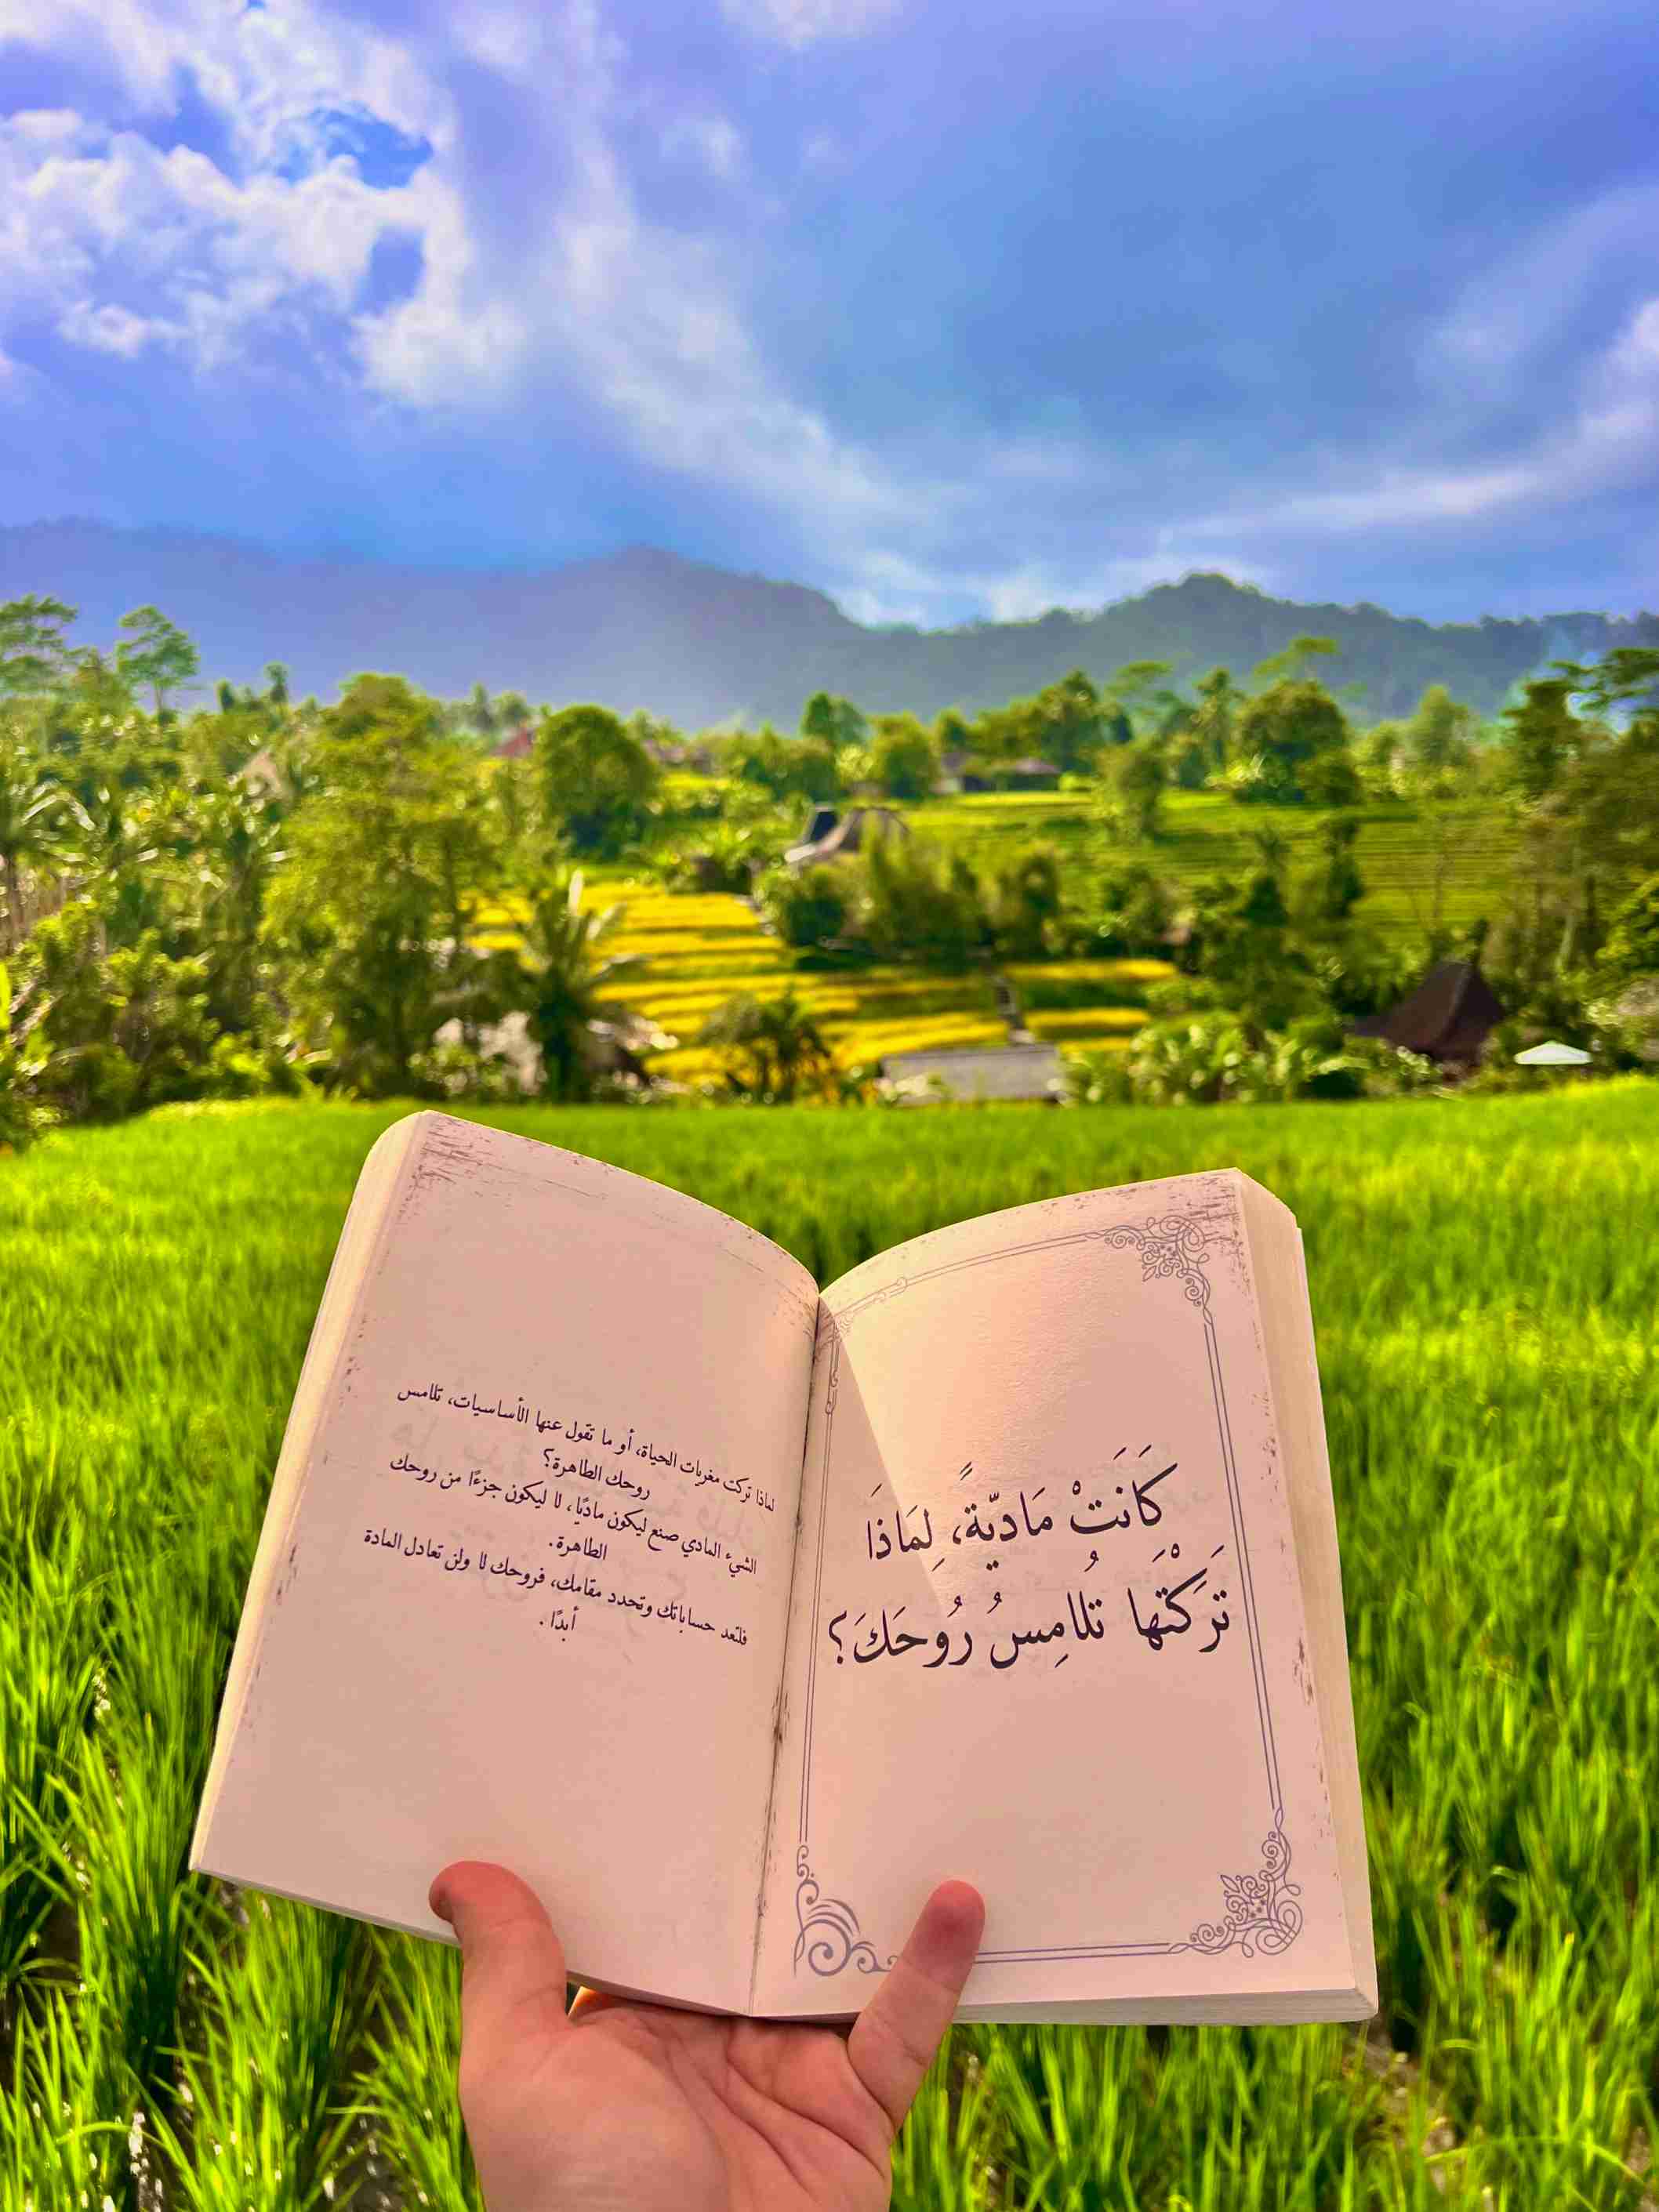 كَانَتْ مَاديّةً، لِمَاذَا
تَرَكْتَهَا تُلامِسُ رُوحَكَ؟
لماذا تركت مغريات الحياة، أو ما تقول عنها الأساسيات، تلامس
روحك الطاهرة؟
الشيء المادي صنع ليكون ماديًا، لا ليكون جزءًا من روحك
الطاهرة.
فلتعد حساباتك وتحدد مقامك، فروحك لا ولن تعادل المادة
أبدًا.